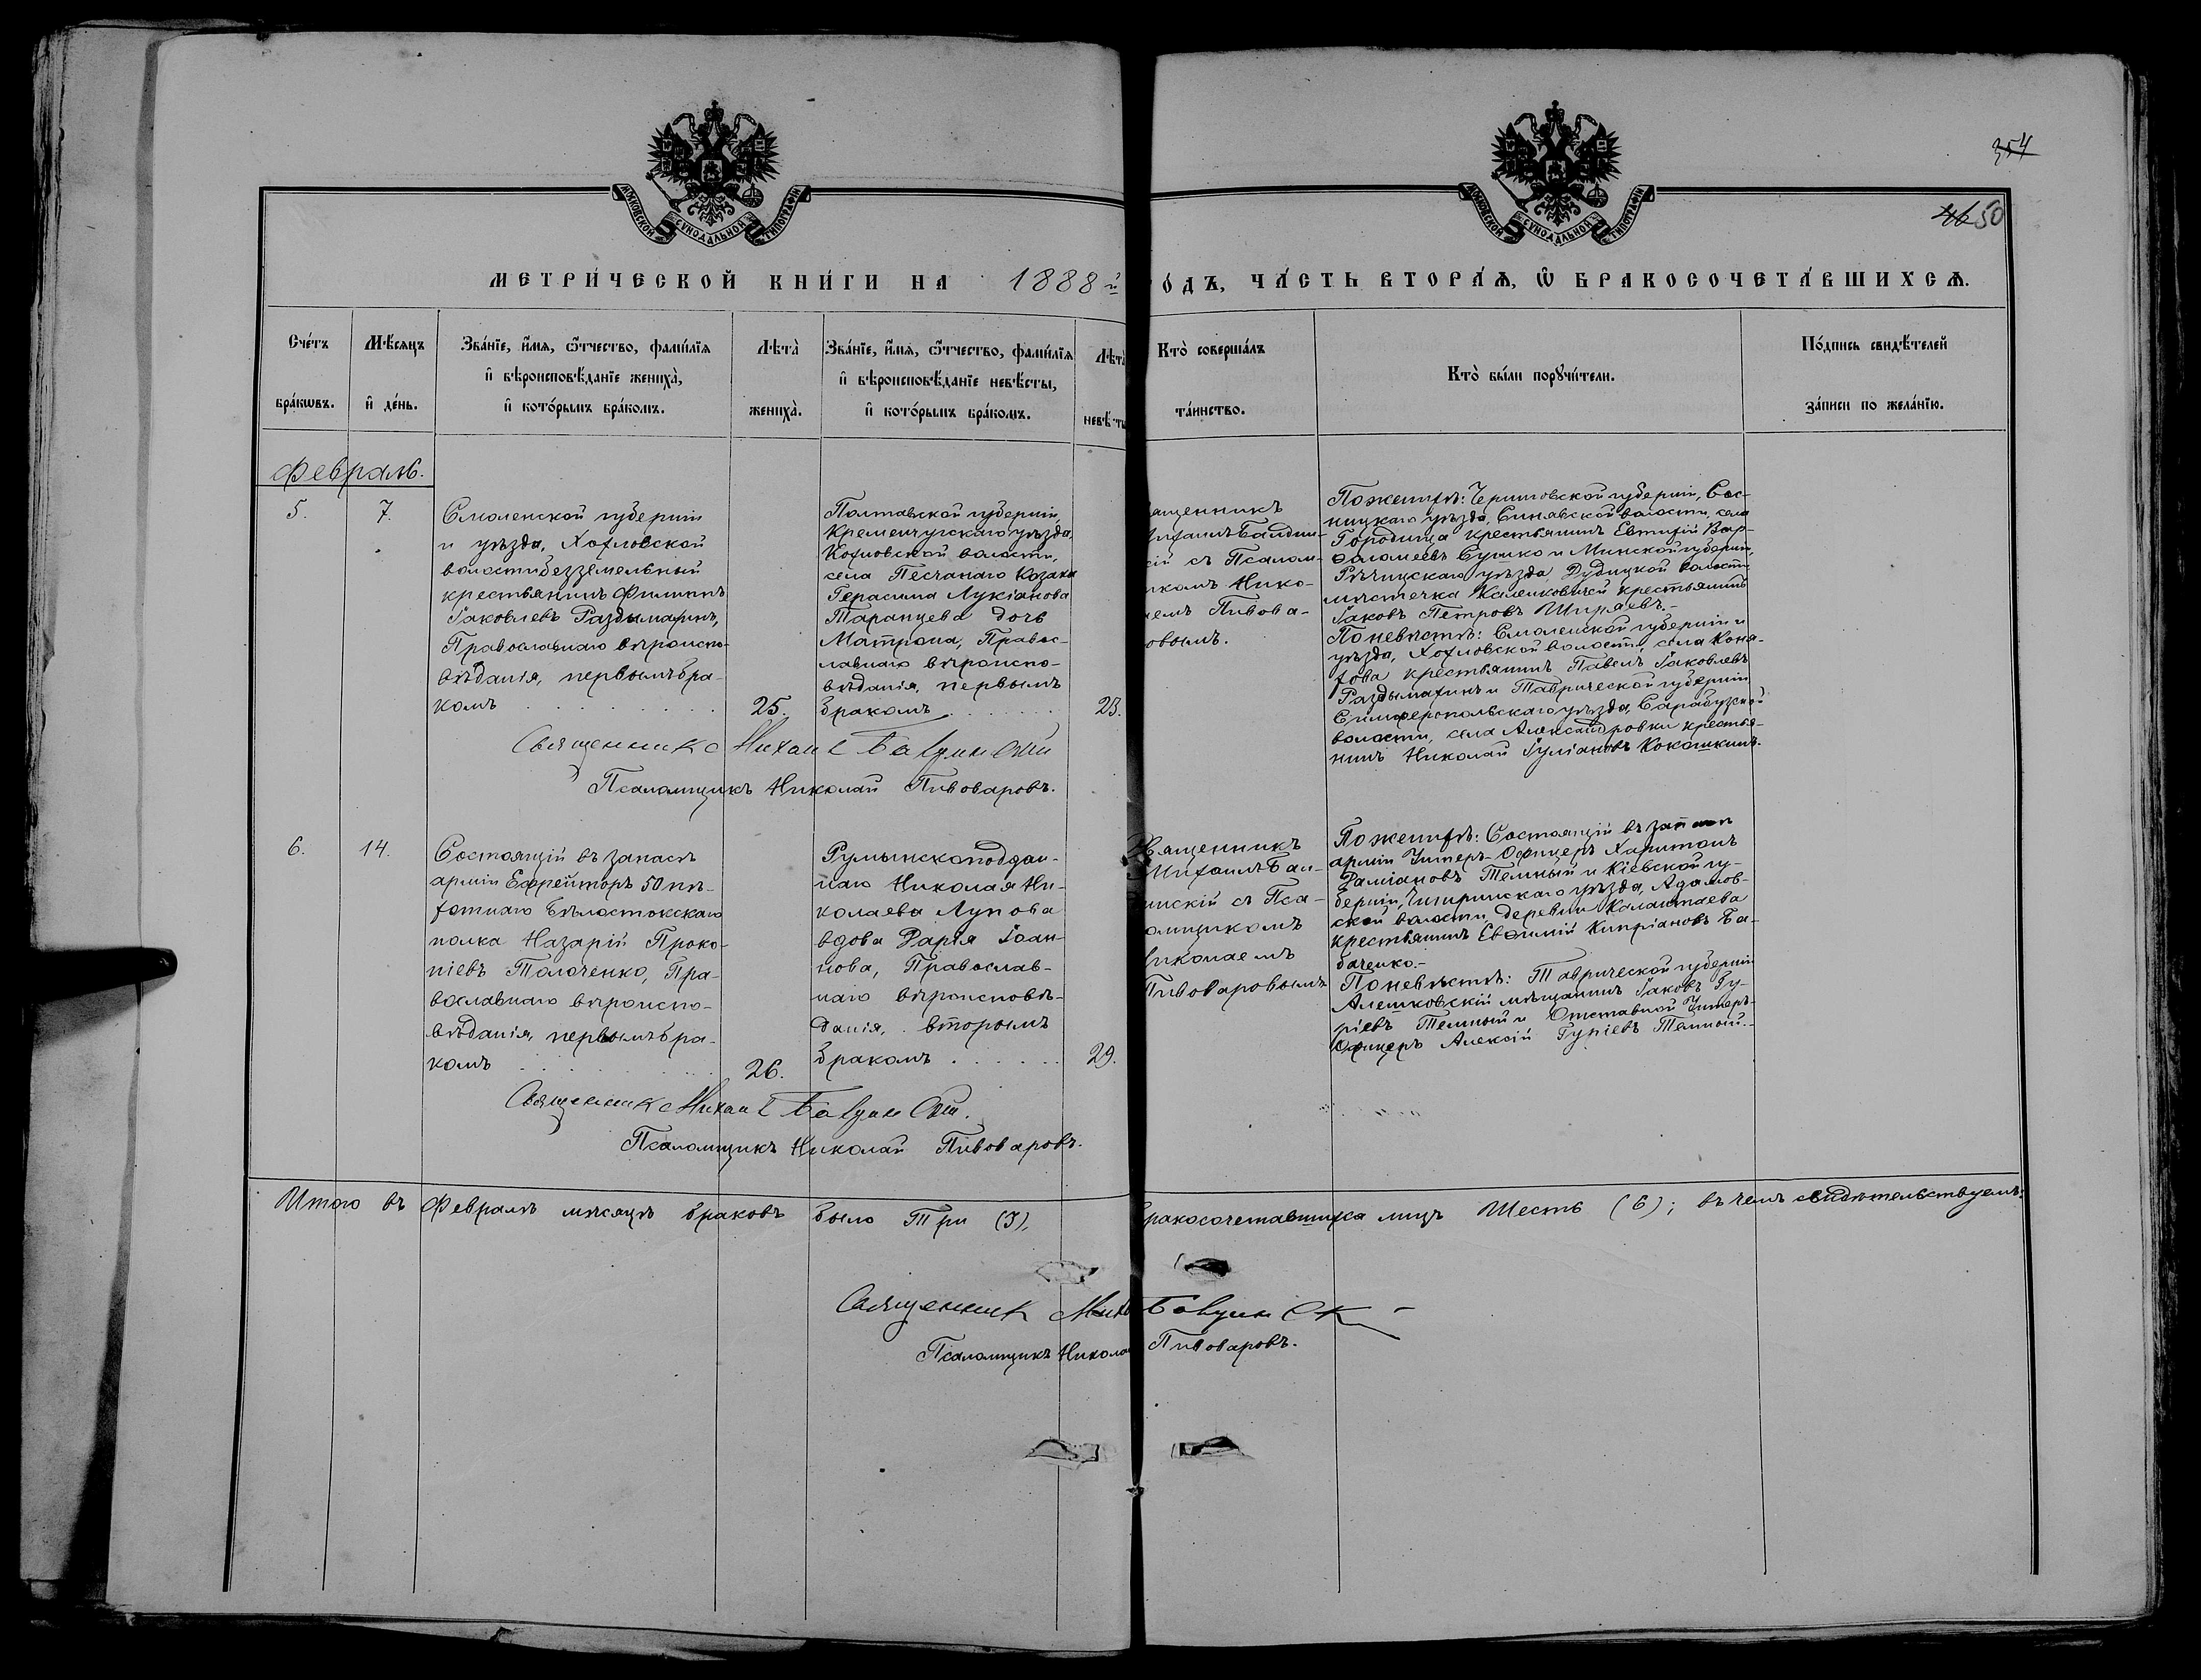 354
46 50
МОСКОВСКОЙ СУНОДАЛЬНОЙ ТИПОГРАФІИ
МОСКОВСКОЙ СУНОДАЛЬНОЙ ТИПОГРАФІИ
МЕТРИ́ЧЕСКОЙ КНИ́ГИ НА 1888й
О́ДЪ, ЧА́СТЬ ВТОРА́Ѧ, Ѽ БРАКОСОЧЕТА́ВШИХСѦ.
Сче́тъ
бра́кѡвъ.
Мѣ́сѧцъ
и҆ де́нь.
Зва́нїе, и҆́мѧ, ѻ҆́тчество, фами́лїѧ
и҆ вѣроисповѣ́данїе жениха̀,
и҆ кото́рымъ бра́комъ.
Лѣта̀
жениха̀.
Зва́нїе, и҆́мѧ, ѻ҆́тчество, фами́лїѧ
и҆ вѣроисповѣ́данїе невѣ́сты,
и҆ кото́рымъ бра́комъ.
Лѣта̀
невѣ́сты
Кто̀ соверша́лъ
та́инство.
Кто̀ бы́ли порꙋчи́тели.
По́дпись свидѣ́телей
за́писи по жела́нїю.
Февраль.
5.
7.
Смоленской губерніи
и уѣзда, Хохловской
волости безземельный
крестьянинъ Филиппъ
Іаковлевъ Раздымахинъ,
Православнаго вѣроиспо-
вѣданія, первымъ бра-
комъ
25.
Полтавской губерніи,
Кременчугскаго уѣзда,
Кохновской волости,
села Песчанаго Козака
Герасима Лукіанова
Таранцева дочь
Матрона, Правос-
лавнаго вѣроиспо-
вѣданія, первымъ
бракомъ
23.
ащенникъ
ихаилъ Балдин-
кій съ Псалом-
икомъ Нико-
лаемъ Пивова-
ровымъ.
По женихѣ: Черниговской губерніи, Сос-
ницкаго уѣзда, Синявской волости, села
Городища крестьянинъ Евтихій Вар-
ѳоломеевъ Сушко и Минской губерніи,
Рѣчицкаго уѣзда, Дудицкой волости
мѣстечка Каленковичей крестьянинъ
Іаковъ Петровъ Ширяевъ.-
По невѣстѣ: Смоленской губерніи и
уѣзда, Хохловской волости, села Коха-
хова крестьянинъ Павелъ Іаковлевъ
Раздымахинъ и Таврической губерніи
Симферопольскаго уѣзда, Сарабузской
волости, села Александровки крестья-
нинъ Николай Іуліановъ Кокошкинъ.
Священникъ Михаилъ Балдинскій
Псаломщикъ Николай Пивоваровъ.
6.
14.
Состоящій въ запасѣ
арміи Ефрейторъ 50 пѣ-
хотнаго Бѣлостокскаго
полка Назарій Проко-
піевъ Толоченко, Пра-
вославнаго вѣроиспо-
вѣданія, первымъ бра-
комъ
26.
Румынскоподдан-
наго Николая Ни-
колаева Лупова
вдова Дарія Іоан-
нова, Православ-
наго вѣроисповѣ-
данія, вторымъ
бракомъ
29.
Священникъ
Михаилъ Бал-
динскій съ Пса-
ломщикомъ
Николаемъ
Пивоваровымъ
По женихѣ: Состоящій въ запасѣ
арміи Унтеръ-Офицеръ Харитонъ
Даміановъ Темный и Кіевской гу-
берніи, Чигиринскаго уѣзда, Адамов-
ской волости, деревни Калантаева
крестьянинъ Евѳимій Кипріановъ Ба-
баченко.-
По невѣстѣ: Таврической губерніи
Алешковскій мѣщанинъ Іаковъ Гу-
ріевъ Темный и Отставной Унтеръ-
Офицеръ Алексій Гуріевъ Темный.-
Священникъ Михаилъ Балдинскій.
Псаломщикъ Николай Пивоваровъ.
Итого въ Февралѣ мѣсяцѣ браковъ было Три (3), бракосочетавшихся лицъ Шесть (6); въ чемъ свидѣтельствуемъ:
Священникъ Миха Балдинскій
Псаломщикъ Никола Пивоваровъ.